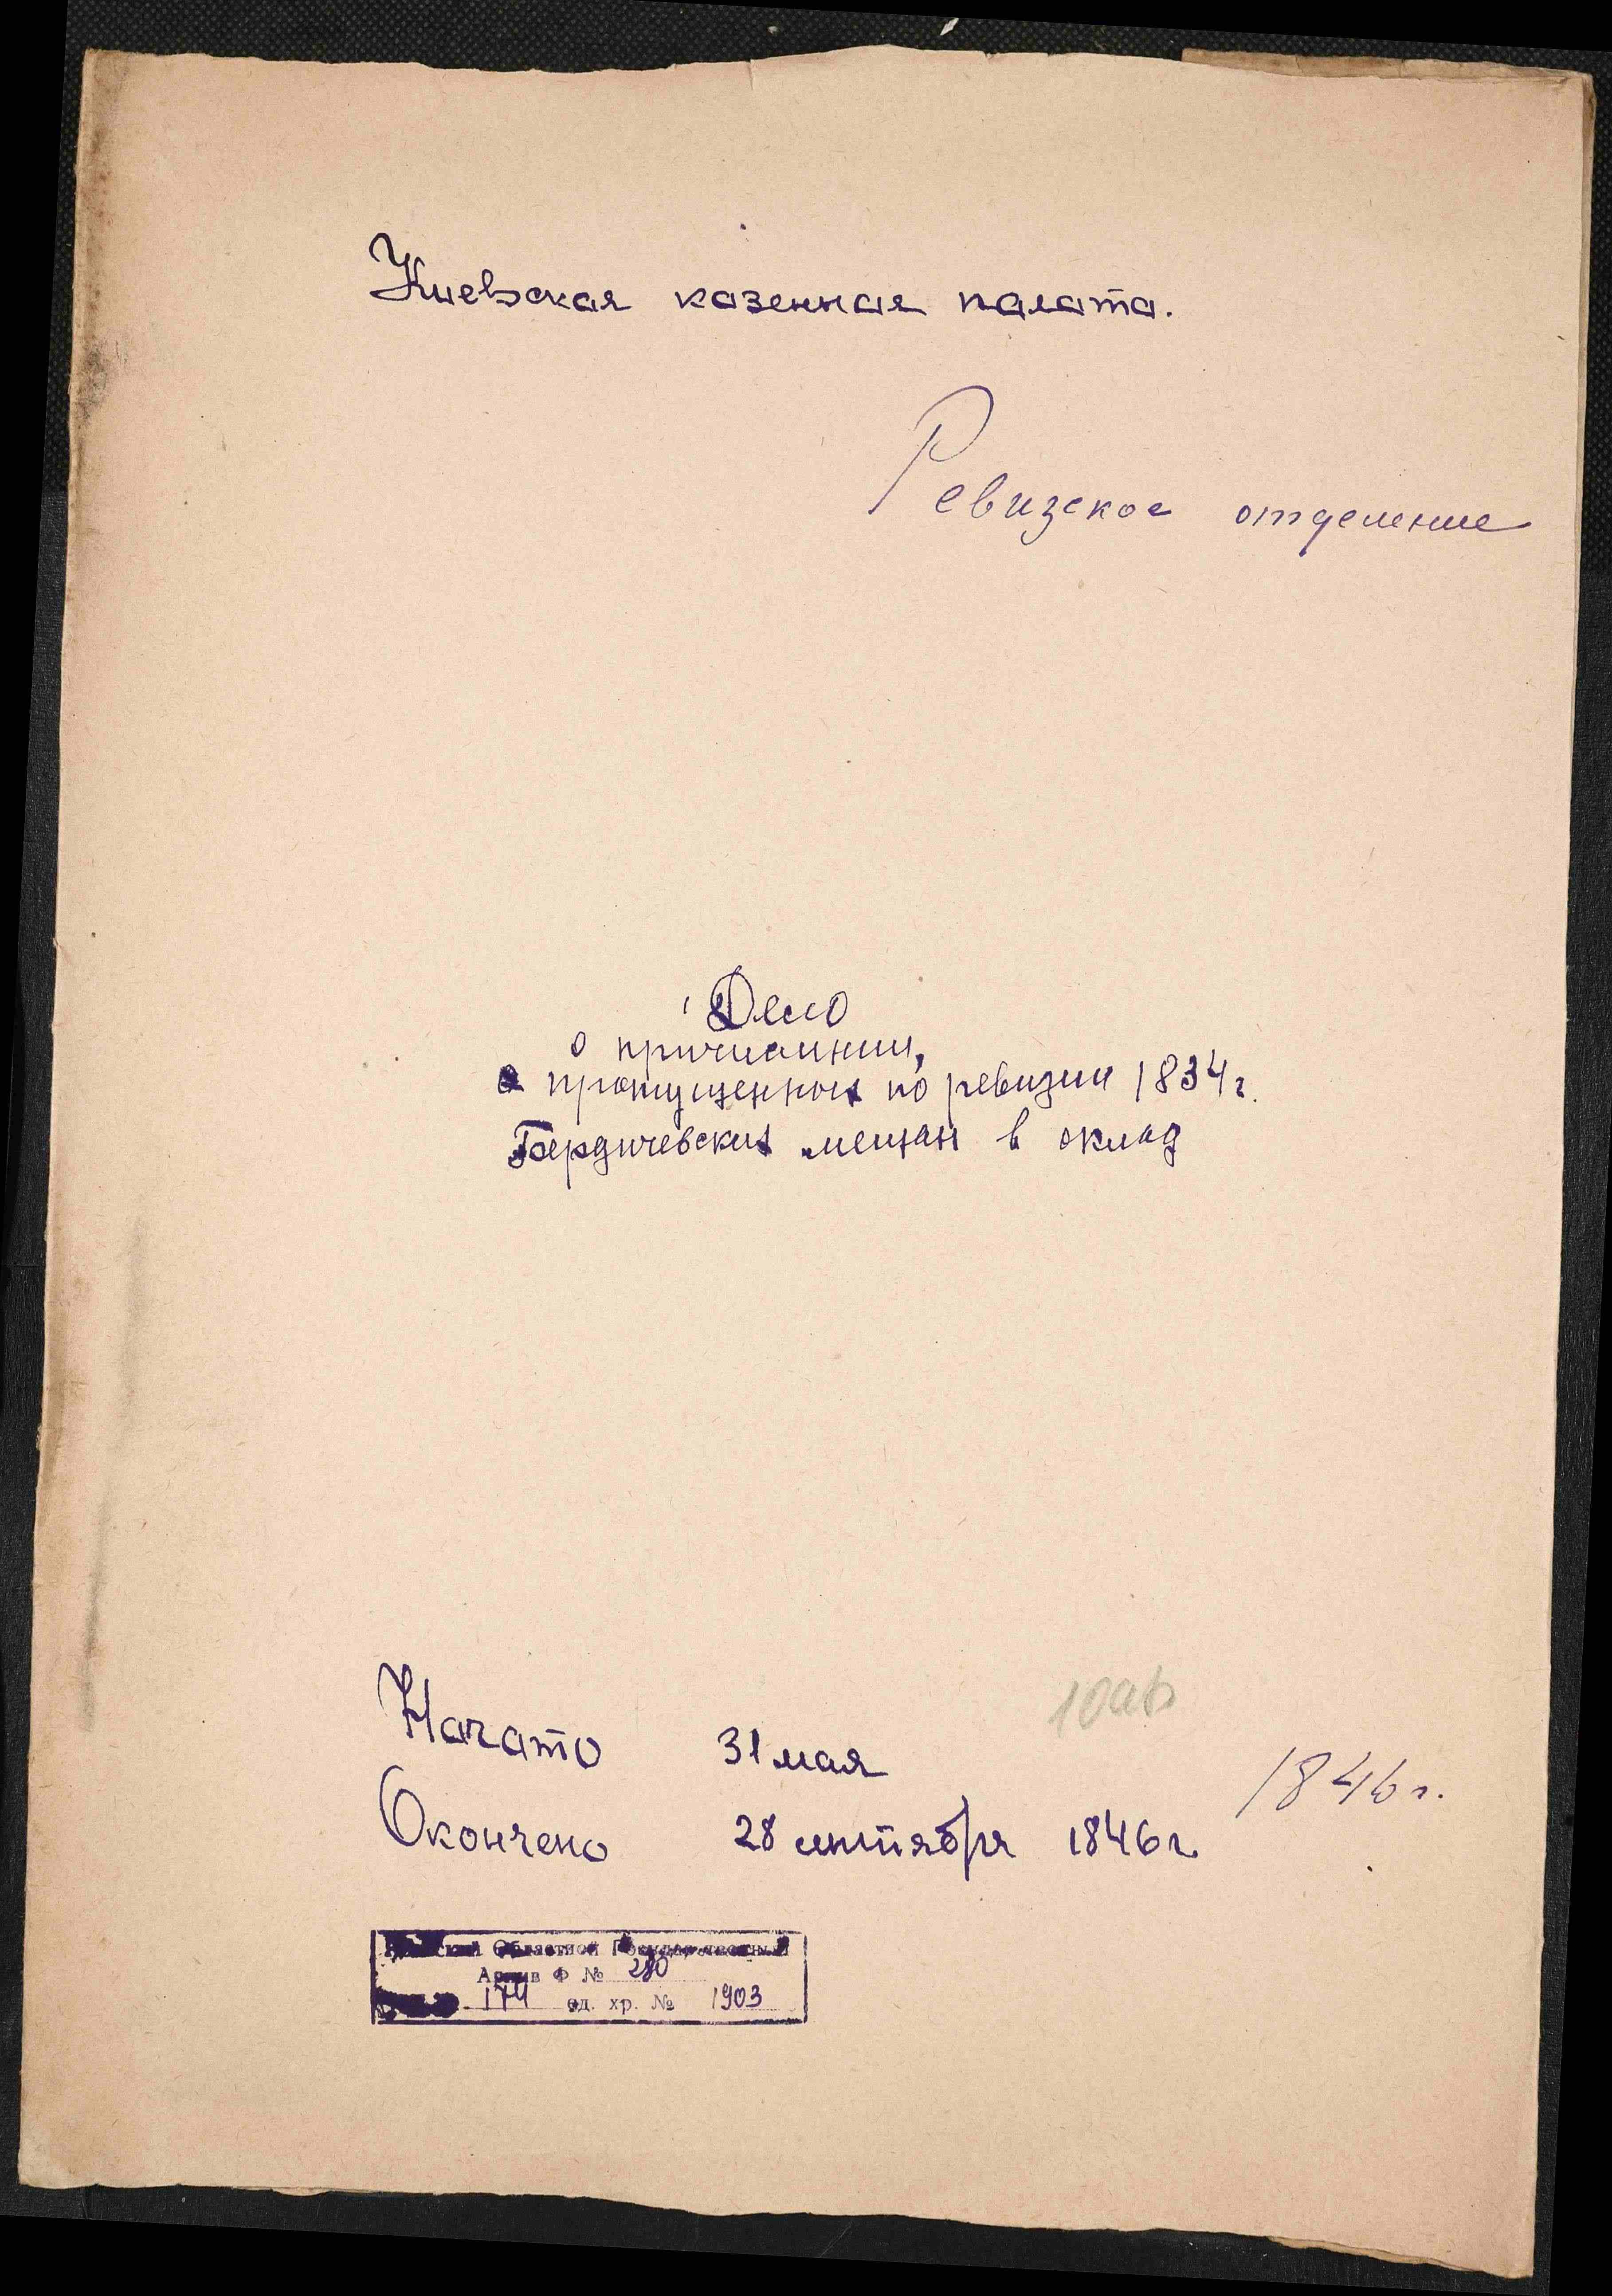 Киевская казенная палата.
Ревизское отделение
Дело
о причислении,
пропущенных по ревизии 1834 г.
Бердичевских мещан в оклад
Начато 31 мая
1846 г.
Окончено 28 сентября 1846 г.
Областной Государственный
Архив Ф № 280
174 ед. хр. № 1903